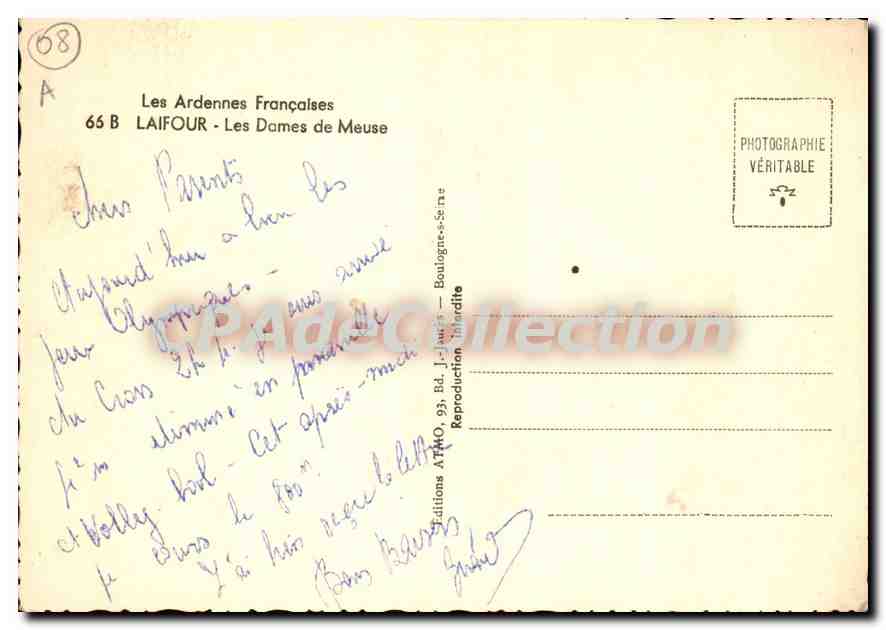 08
A
Les Ardennes Françaises
66 B LAIFOUR - Les Dames de Meuse
PHOTOGRAPHIE
VÉRITABLE
Chers Parents
Aujourd'hui a lieu les
jeux Olympiques -
du Cross je suis arrivé
éliminé en
et Volley bool - Cet après-midi
je cours le 800m
J'ai bien reçu la lettre
Bons Baisers
Editions ATMO, 93, Bd. J.-Jaurès — Boulogne-s-Seine
Reproduction interdite
CPAdeCollection